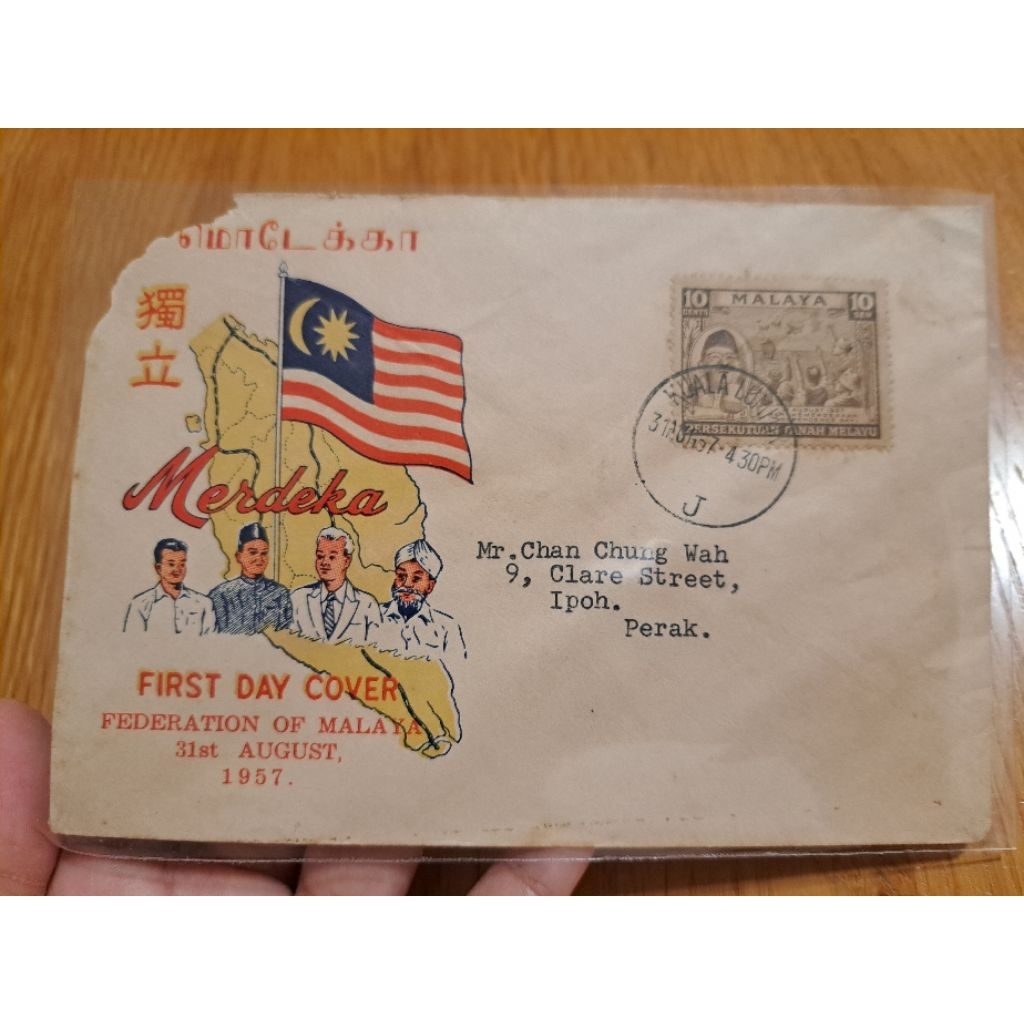 மொடேக்கா
獨
立
Merdeka
FIRST DAY COVER
FEDERATION OF MALAYA
31st AUGUST,
1957.
10 MALAYA 10
CENTS SEN
PERSEKUTUAN TANAH MELAYU
KUALA
4 30PM
J
Mr.Chan Chung Wah
9, Clare Street,
Ipoh.
Perak.